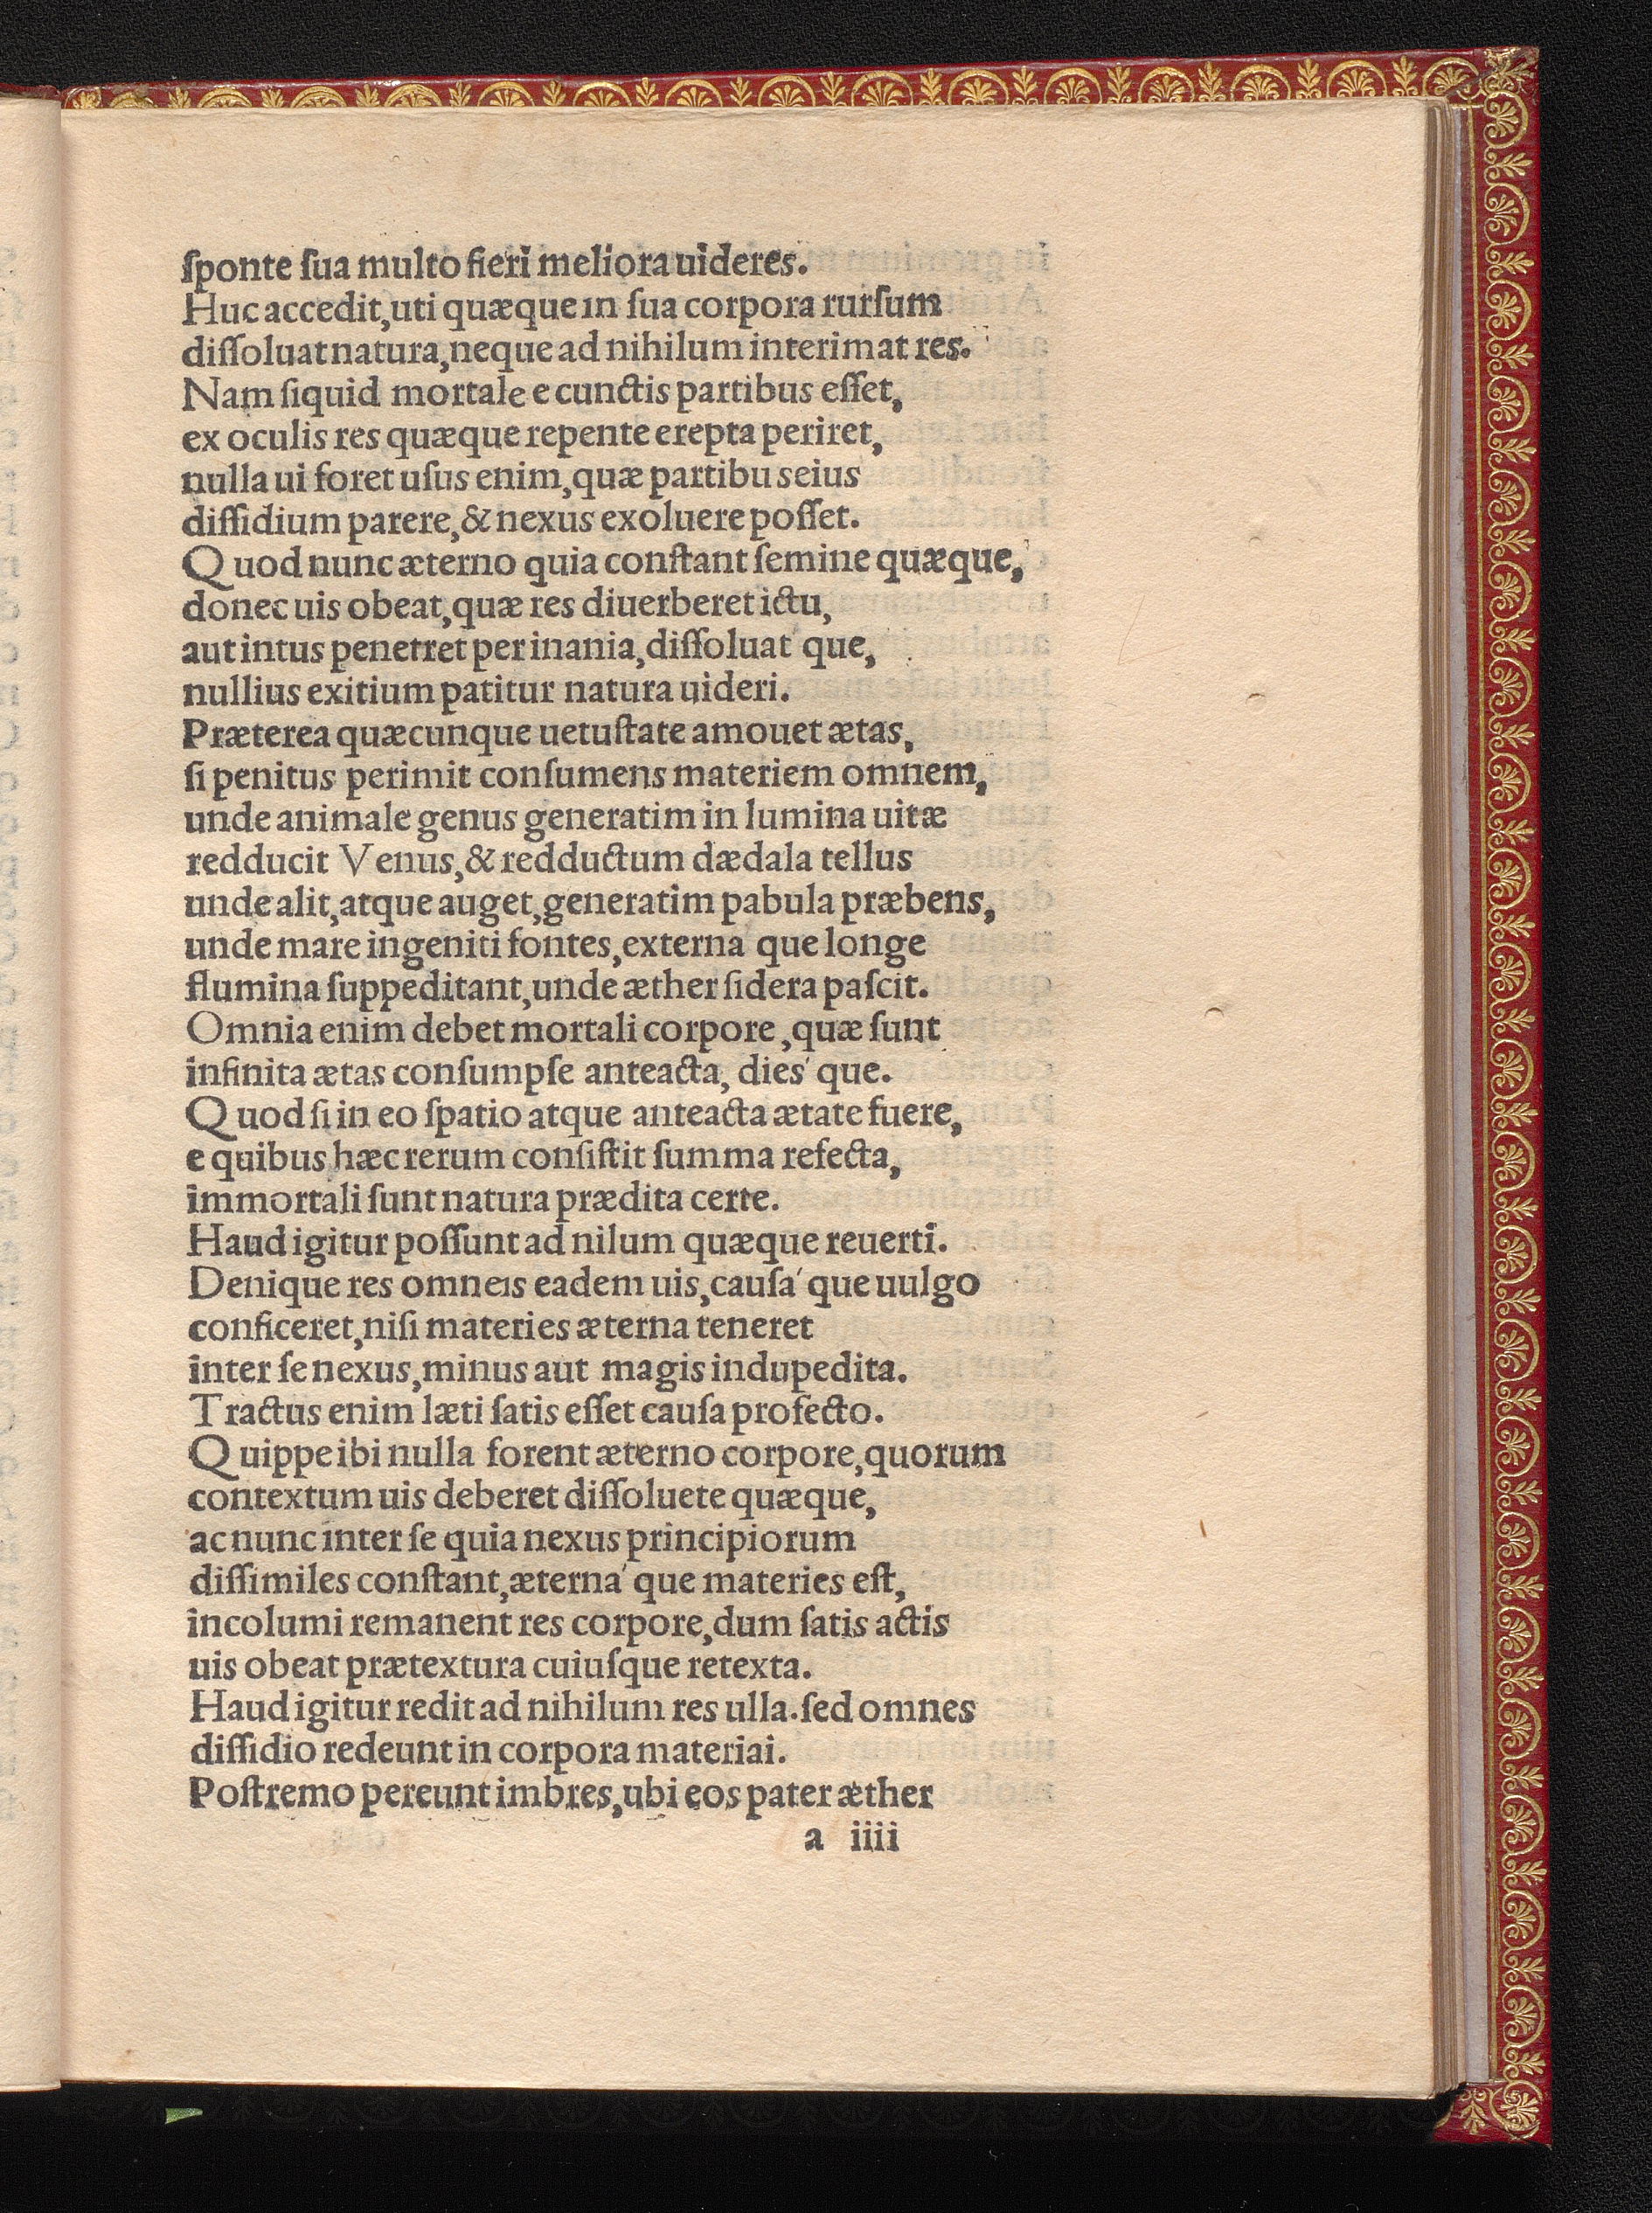 ſponte ſua multo fieri meliora uideres.
Huc accedit, uti quæque in ſua corpora rurſum
diſſoluat natura, neque ad nihilum interimat res.
Nam ſiquid mortale e cunctis partibus eſſet,
ex oculis res quæque repente erepta periret,
nulla ui foret uſus enim, quæ partibu seius
diſſidium parere, & nexus exoluere poſſet.
Quod nunc æterno quia conſtant ſemine quæque,
donec uis obeat, quæ res diuerberet ictu,
aut intus penetret per inania, diſſoluat' que,
nullius exitium patitur natura uideri.
Præterea quæcunque uetuſtate amouet ætas,
ſi penitus perimit conſumens materiem omnem,
unde animale genus generatim in lumina uitæ
redducit Venus, & redductum dædala tellus
unde alit, atque auget, generatim pabula præbens,
unde mare ingeniti fontes, externa' que longe
flumina ſuppeditant, unde æther ſidera paſcit.
Omnia enim debet mortali corpore, quæ ſunt
infinita ætas conſumpſe anteacta, dies' que.
Quod ſi in eo ſpatio atque anteacta ætate fuere,
e quibus hæc rerum conſiſtit ſumma refecta,
immortali ſunt natura prædita certe.
Haud igitur poſſunt ad nilum quæque reuerti.
Denique res omneis eadem uis, cauſa' que uulgo
conficeret, niſi materies æterna teneret
inter ſe nexus, minus aut magis indupedita.
Tractus enim læti ſatis eſſet cauſa profecto.
Quippe ibi nulla forent æterno corpore, quorum
contextum uis deberet diſſoluete quæque,
ac nunc inter ſe quia nexus principiorum
diſſimiles conſtant, æterna' que materies eſt,
incolumi remanent res corpore, dum ſatis actis
uis obeat prætextura cuiuſque retexta.
Haud igitur redit ad nihilum res ulla. ſed omnes
diſſidio redeunt in corpora materiai.
Poſtremo pereunt imbres, ubi eos pater æther
a iiii